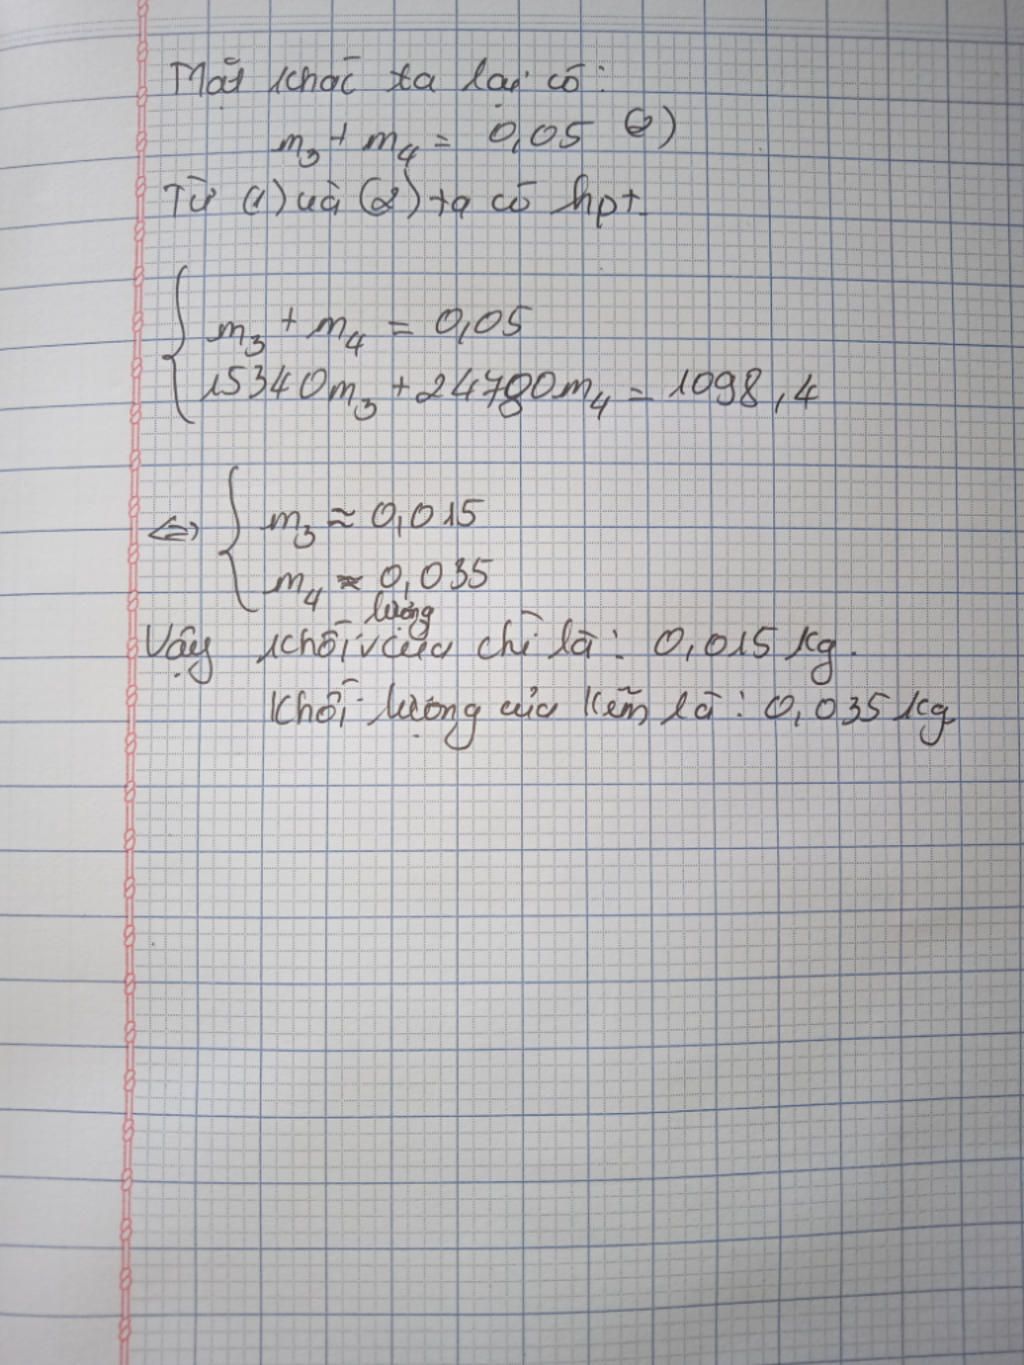 Mặt khác ta lại có:
m₃ + m₄ = 0,05 (2)
Từ (1) và (2) ta có hpt
m₃ + m₄ = 0,05
15340m₃ + 24780m₄ = 1098,4
<=> m₃ ≈ 0,015
m₄ ≈ 0,035
Vậy khối lượng của chì là: 0,015 kg.
Khối lượng của kẽm là: 0,035 kg